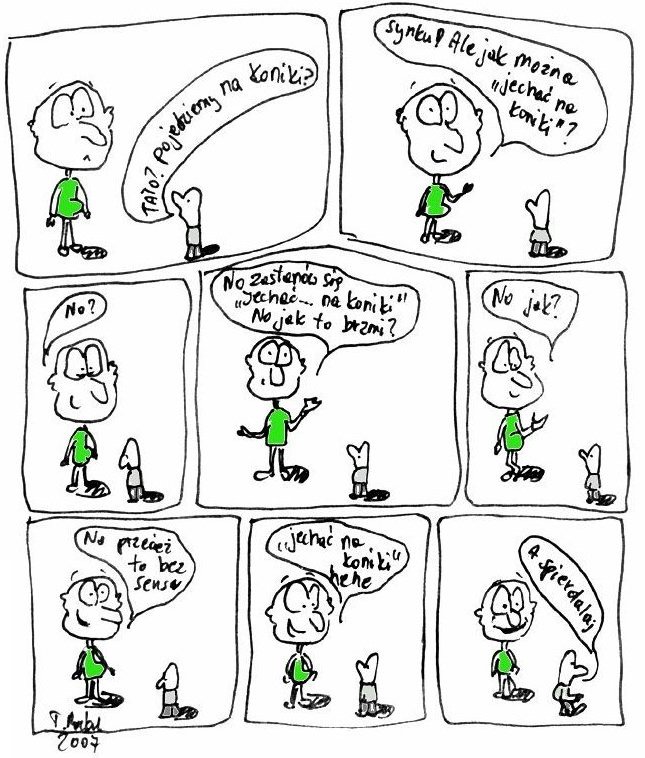 TATO? pojedziemy na koniki?
synku! Ale jak można
„jechać na
koniki"?
No?
No zastanów się
„Jechać... na koniki"
No jak to brzmi?
No jak?
No przecież
to bez
sensu
„jechać na
koniki"
hehe
A spierdalaj
2007